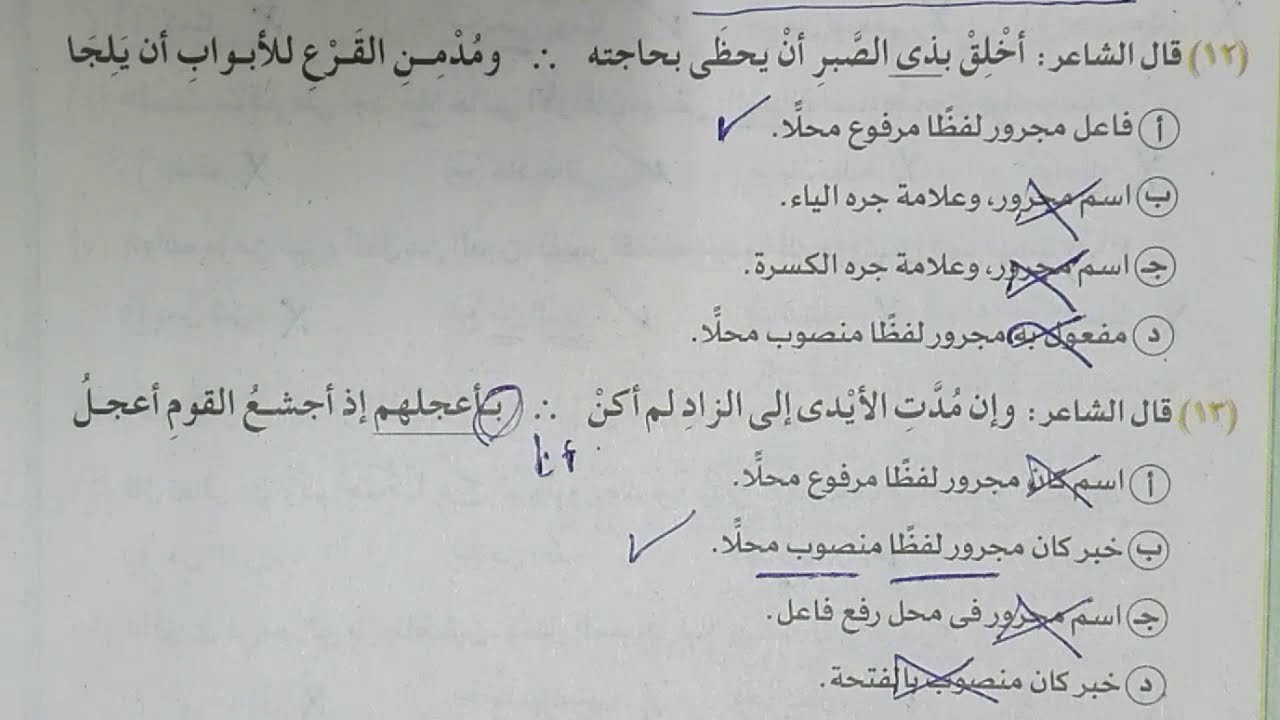 (١٢) قال الشاعر: أخْلِقْ بذى الصَّبرِ أنْ يحظَى بحاجته ∴ ومُدْمِنِ القَرْعِ للأبوابِ أن يَلِجَا
أ فاعل مجرور لفظًا مرفوع محلًّا.
ب اسم مجرور، وعلامة جره الياء.
جـ اسم مجرور، وعلامة جره الكسرة.
د مفعول به مجرور لفظًا منصوب محلًّا.
(١٣) قال الشاعر: وإن مُدَّتِ الأيْدى إلى الزادِ لم أكنْ ∴ بأعجلهم إذ أجشعُ القومِ أعجلُ
أنا
أ اسم كان مجرور لفظًا مرفوع محلًّا.
ب خبر كان مجرور لفظًا منصوب محلًّا.
جـ اسم مجرور فى محل رفع فاعل.
د خبر كان منصوب بالفتحة.